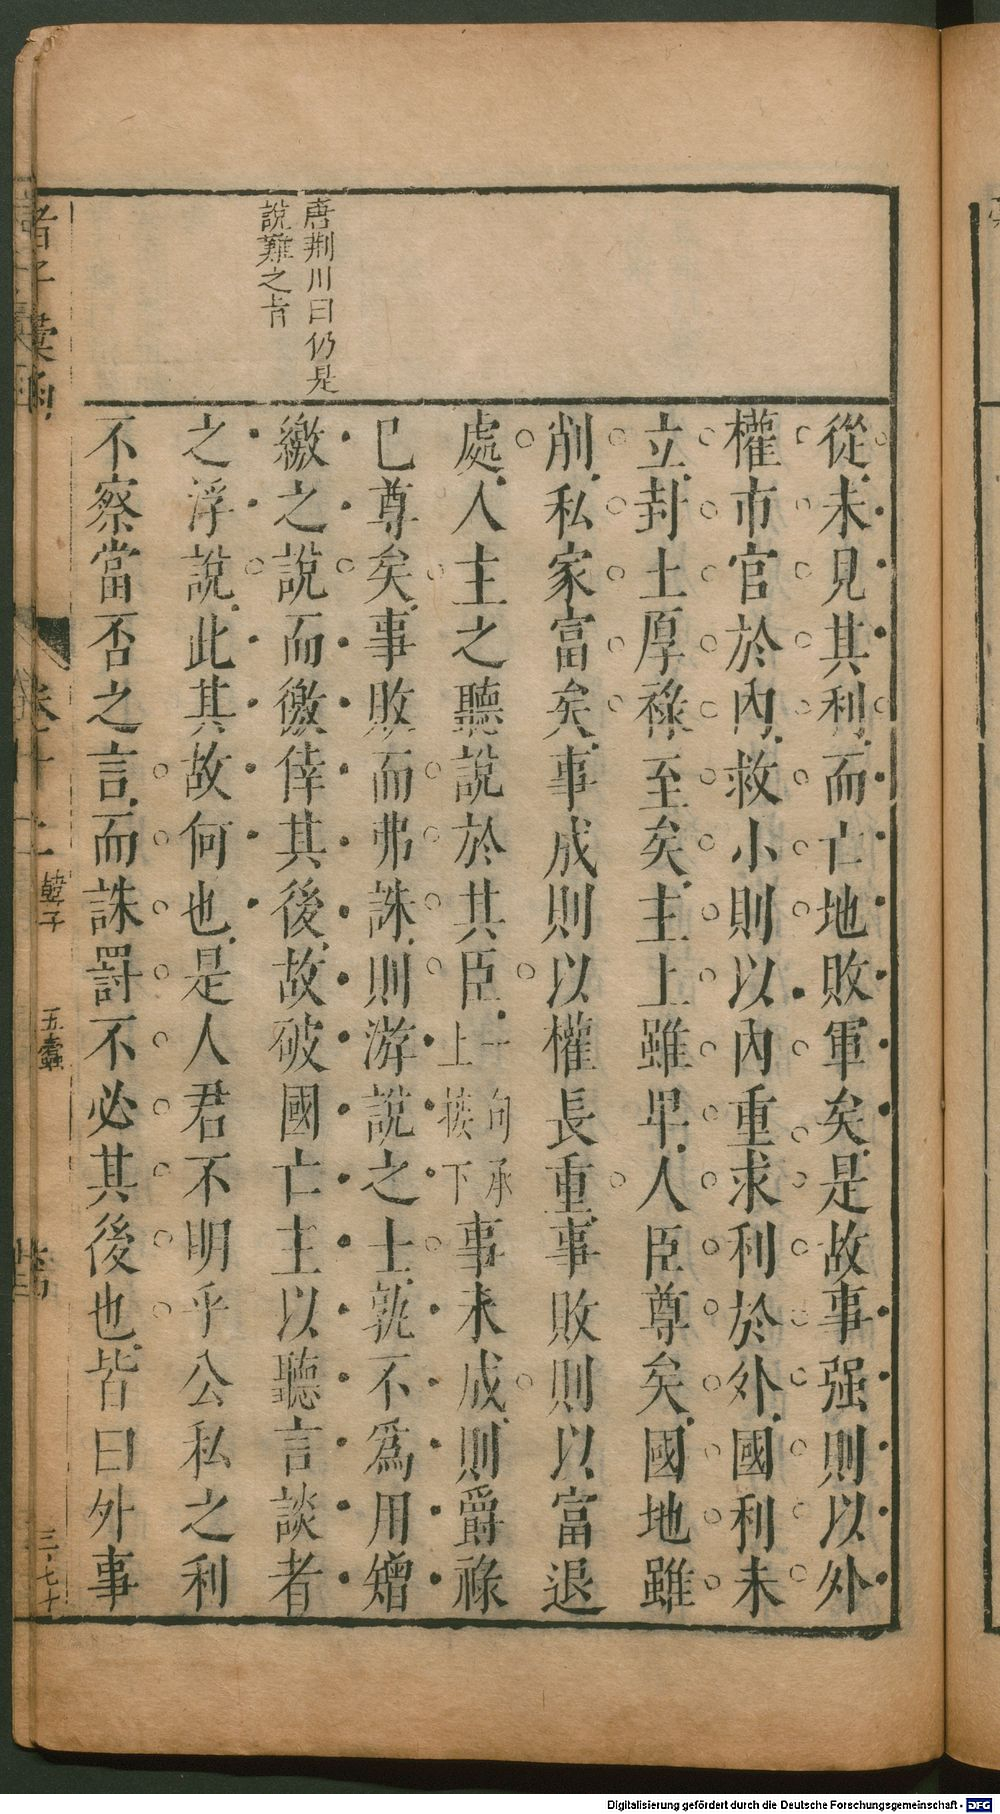 唐荆川曰仍是
說難之旨
從未見其利而亡地敗軍矣是故事强則以外
權市官於內救小則以內重求利於外國利未
立封土厚祿至矣主上雖卑人臣尊矣國地雖
削私家富矣事成則以權長重事敗則以富退
處人主之聽說於其臣一句承上接下事未成則爵祿
已尊矣事敗而弗誅則游說之士孰不爲用矰
繳之說而徼倖其後故破國亡主以聽言談者
之浮說此其故何也是人君不明乎公私之利
不察當否之言而誅罰不必其後也皆曰外事
諸子彙函
卷十二
韓子
五蠹
Digitalisierung gefördert durch die Deutsche Forschungsgemeinschaft - DFG